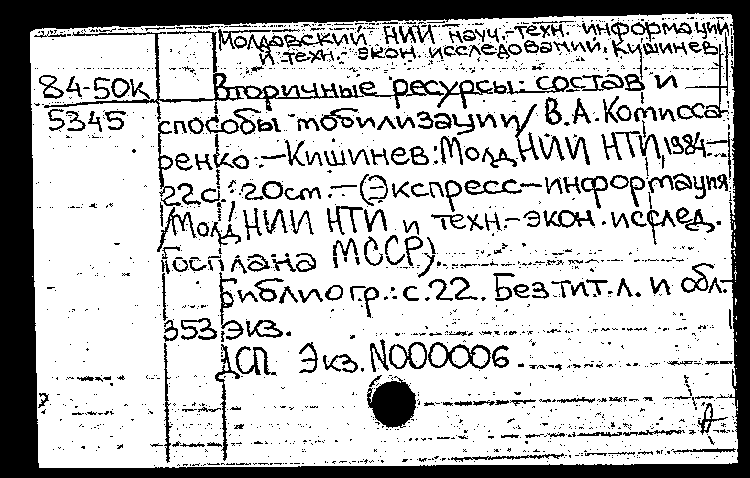 Молдавский НИИ науч.-техн. информации
и техн.-экон. исследований. Кишинев
84-50к Вторичные ресурсы: состав и
5345 способы мобилизации/ В.А. Комисса-
ренко.—Кишинев: Молд НИИ НТИ, 1984—
22с.; 20см.—(Экспресс-информация
/Молд НИИ НТИ и техн.-экон. исслед.
Госплана МССР).
Библиогр.: с.22. Без тит.л. и обл.-
353 экз.
ДСП Экз. N000006